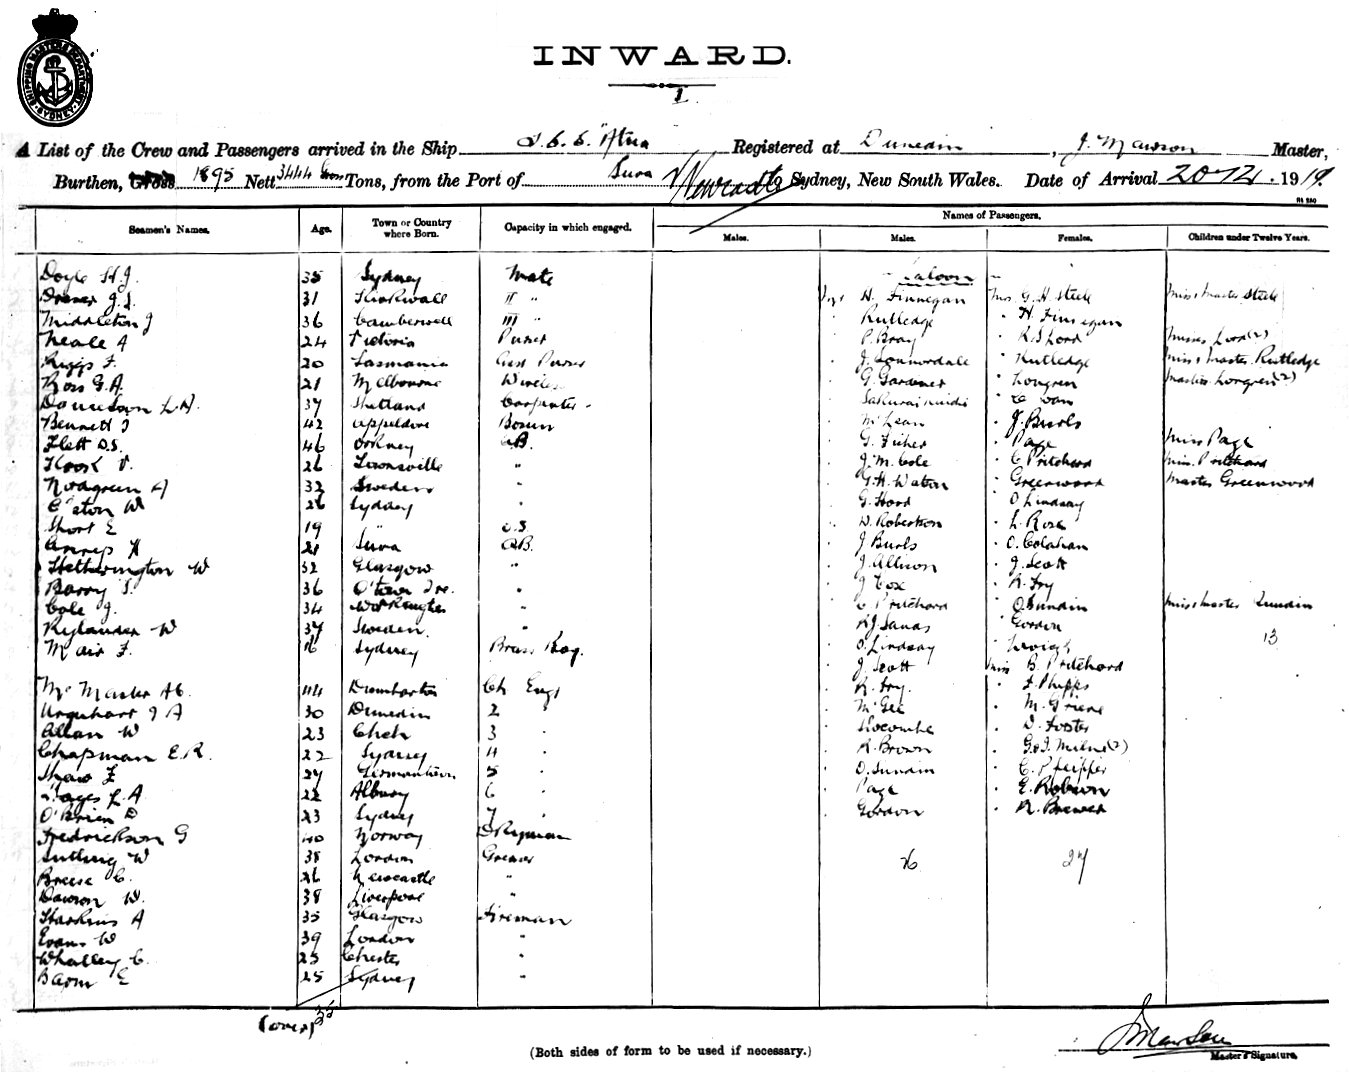 SHIPPING MASTERS DEPARTMENT SYDNEY
INWARD.
1
A List of the Crew and Passengers arrived in the Ship T.S.S. "Atua Registered at Dunedin, J. Mawson Master,
Burthen, Gross 1895 Nett 3444 Gross Tons, from the Port of Suva to Sydney, New South Wales. Date of Arrival 20-12-1919.
Seamen's Names. Age. Town or Country where Born. Capacity in which engaged. Names of Passengers.
Males. Males. Females. Children under Twelve Years.
Saloon
Doyle H J. 35 Sydney Mate
31 Kirkwall II " H. Finnegan Mrs G. H. Steele Miss Master Steele
Middleton J 36 Camberwell III " Rutledge " H. Finnegan
Neale A 24 Victoria Purser P. Bray " R S Lord Misses Lord (2)
Riggs F. 20 Tasmania Asst Purser " Rutledge Miss Master Rutledge
Ross G. A. 21 Melbourne Wireless G. Gardner " Longren Masters Longren (2)
37 Shetland Carpenter
Bennett J 42 Appeldore Bosun McLean " J. Burls
Flett D. S. 46 Orkney AB. G. Fisher " Page Miss Page
Hook V. 26 Townsville " J. M. Cole " C Pritchard Miss Pritchard
Nordgreen A 32 Sweden " G. H. Watson " Greenwood Master Greenwood
Eaton W 26 Sydney " G. Hood " O Lindsay
Short E 19 " O.S. D. Robertson " L. Rose
21 Suva AB. J Burls " C. Colahan
Hetherington W 32 Glasgow " J. Allison " J. Scott
Barry S. 36 " J Cox " R. Fry
Cole J. 34 " C Pritchard " O Sundin Miss Master Sundin
Rylander W 37 Sweden. " R J Sands " Gordon
13
Mair F. 16 Sydney Brass Boy. O. Lindsay
J. Scott Miss B. Pritchard
McMaster A C. 44 Dumbarton Ch Engr R. Fry. " F Phipps
Urquhart J A 30 Dunedin 2 " McGee
Allan W 23 3 " Slocombe " D. Foster
Chapman E. R. 22 Sydney 4 " R. Brown " G & J. Milne (2)
Shaw F 27 Germantown 5 " O. Sundin " C. Pfeiffer
22 Albury 6 " Page " E. Robson
O'Brien D 23 Sydney 7 " Gordon " R. Brewer
Fredrickson G 40 Norway
W 38 London Greaser 26 27
Breese C. 26 Newcastle "
Dawson W. 38 Liverpool "
Haskins A 35 Glasgow Fireman
Evans W 39 London "
Whalley C. 25 Chester "
E 25 Sydney "
(over) 35
(Both sides of form to be used if necessary.)
J Mawson
Master's Signature.